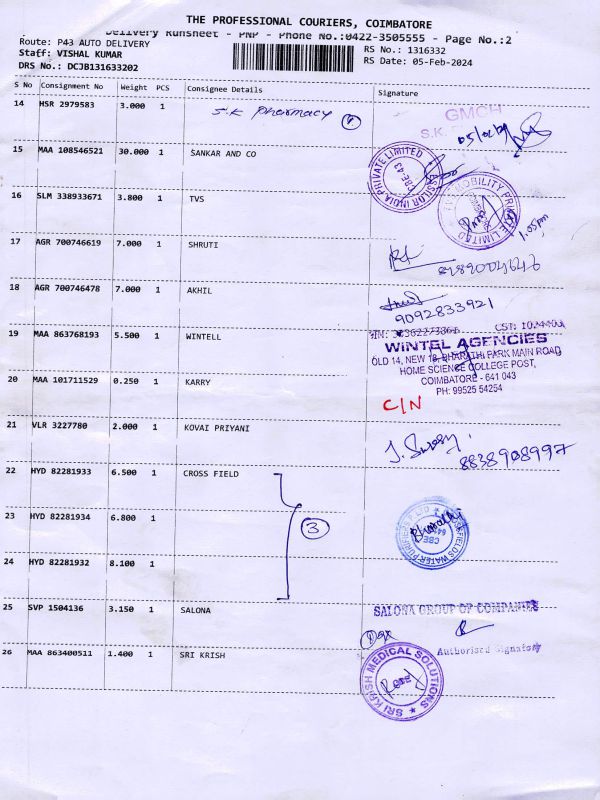 THE PROFESSIONAL COURIERS, COIMBATORE
Delivery Runsheet - PNP - Phone No.:0422-3505555 - Page No.:2
Route: P43 AUTO DELIVERY
RS No.: 1316332
Staff: VISHAL KUMAR
RS Date: 05-Feb-2024
DRS No.: DCJB131633202
S No Consignment No Weight PCS Consignee Details Signature
14 HSR 2979583 3.000 1 S.K Pharmacy
GMCH
S.K.
05/02/24
15 MAA 108546521 30.000 1 SANKAR AND CO
INDIA PRIVATE LIMITED
CBE-43
16 SLM 338933671 3.800 1 TVS
MOBILITY PRIVATE LIMITED
1.05pm
17 AGR 700746619 7.000 1 SHRUTI
18 AGR 700746478 7.000 1 AKHIL
9092833921
19 MAA 863768193 5.500 1 WINTELL
WINTEL AGENCIES
OLD 14, NEW 18, BHARATHI PARK MAIN ROAD
HOME SCIENCE COLLEGE POST,
COIMBATORE - 641 043
PH: 99525 54254
20 MAA 101711529 0.250 1 KARRY
C/N
21 VLR 3227780 2.000 1 KOVAI PRIYANI
8838908997
22 HYD 82281933 6.500 1 CROSS FIELD
23 HYD 82281934 6.800 1
3
CBE
24 HYD 82281932 8.100 1
25 SVP 1504136 3.150 1 SALONA
SALONA GROUP OF COMPANIES
Authorised Signatory
26 MAA 863400511 1.400 1 SRI KRISH
SRI KRISH MEDICAL SOLUTIONS